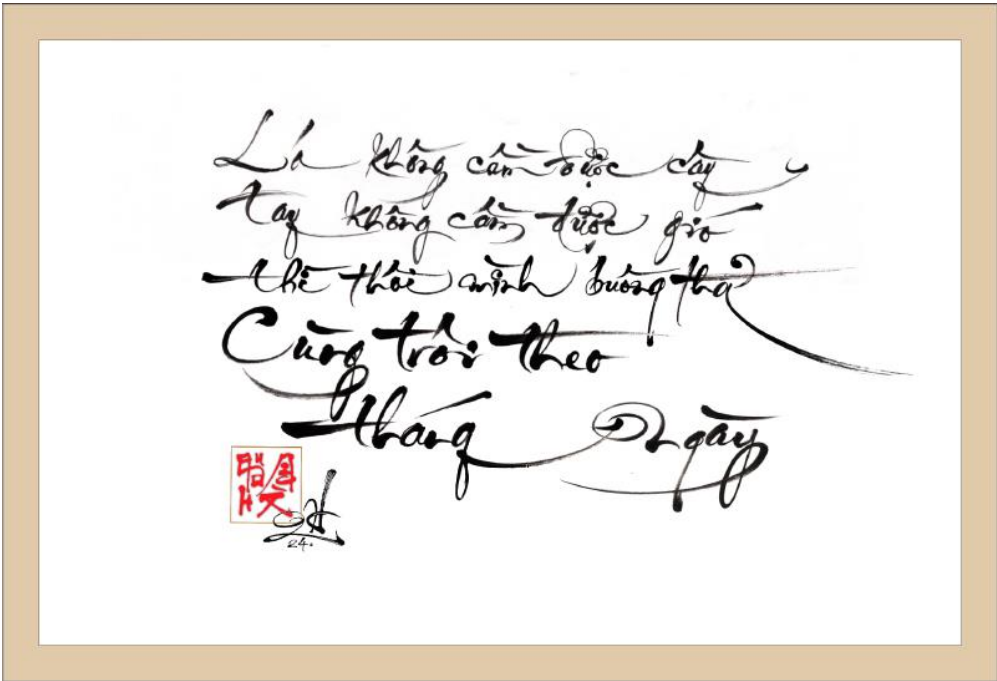 Lá không cầm được cây
Tay không cầm được gió
thế thôi mình buông thả
Cùng trôi theo
tháng Ngày
24.